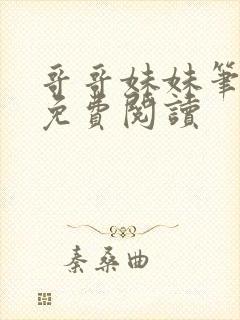 哥哥妹妹筆
免費閱讀
秦桑曲